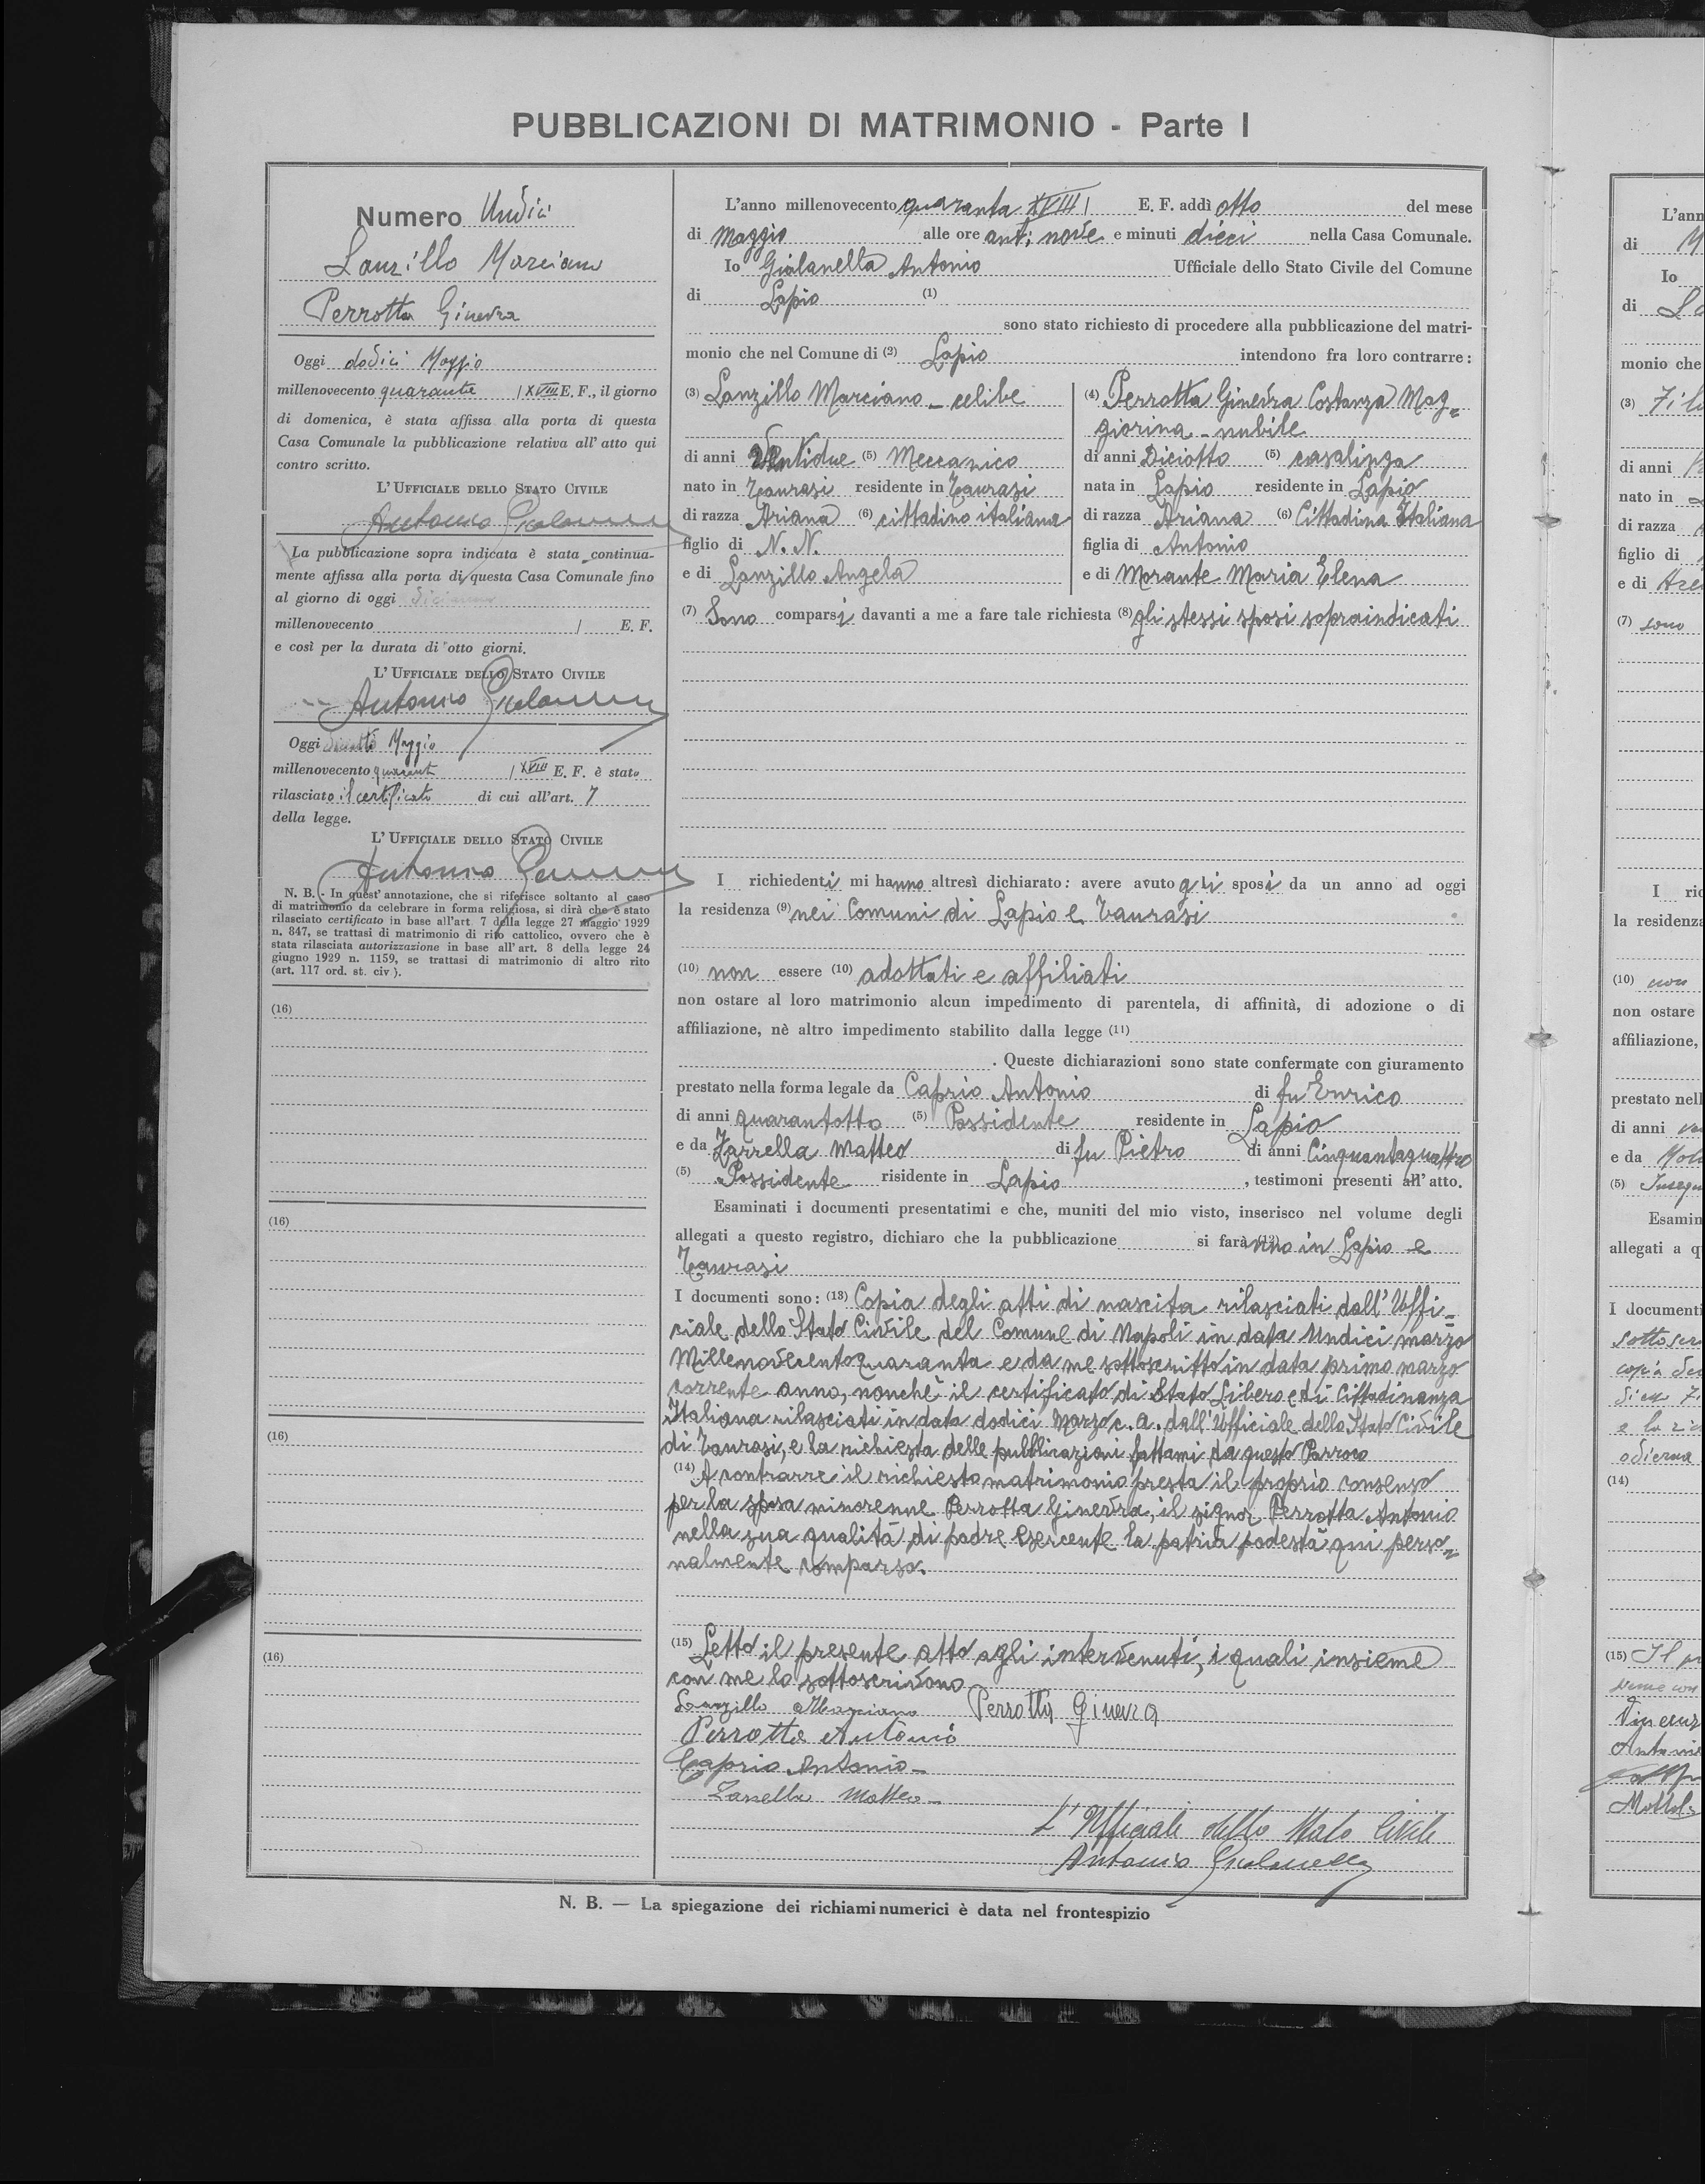 PUBBLICAZIONI DI MATRIMONIO - Parte I
Numero Undici
Lanzillo Marciano
Perrotta Ginevra
Oggi dodici Maggio
millenovecento quaranta / XVIII E. F., il giorno
di domenica, è stata affissa alla porta di questa
Casa Comunale la pubblicazione relativa all' atto qui
contro scritto.
L' UFFICIALE DELLO STATO CIVILE
Antonio
La pubblicazione sopra indicata è stata continua-
mente affissa alla porta di questa Casa Comunale fino
al giorno di oggi
millenovecento / E. F.
e così per la durata di otto giorni.
L' UFFICIALE DELLO STATO CIVILE
Antonio
Oggi Maggio
millenovecento quaranta / XVIII E. F. è stato
rilasciato il certificato di cui all'art. 7
della legge.
L' UFFICIALE DELLO STATO CIVILE
Antonio
N. B. - In quest' annotazione, che si riferisce soltanto al caso
di matrimonio da celebrare in forma religiosa, si dirà che è stato
rilasciato certificato in base all'art. 7 della legge 27 maggio 1929
n. 847, se trattasi di matrimonio di rito cattolico, ovvero che è
stata rilasciata autorizzazione in base all' art. 8 della legge 24
giugno 1929 n. 1159, se trattasi di matrimonio di altro rito
(art. 117 ord. st. civ ).
(16)
(16)
(16)
(16)
L'anno millenovecento quaranta XVIII / E. F. addì otto del mese
di Maggio alle ore ant: nove e minuti dieci nella Casa Comunale.
Io Gialanella Antonio Ufficiale dello Stato Civile del Comune
di Lapio (1)
sono stato richiesto di procedere alla pubblicazione del matri-
monio che nel Comune di (2) Lapio intendono fra loro contrarre:
(3) Lanzillo Marciano - celibe
di anni Ventidue (5) Meccanico
nato in Taurasi residente in Taurasi
di razza Ariana (6) cittadino italiana
figlio di N. N.
e di Lanzillo Angela
(4) Perrotta Ginevra Costanza Mag=
giorina - nubile
di anni Diciotto (5) casalinga
nata in Lapio residente in Lapio
di razza Ariana (6) Cittadina Italiana
figlia di Antonio
e di Morante Maria Elena
(7) Sono comparsi davanti a me a fare tale richiesta (8) gli stessi sposi sopraindicati
I richiedenti mi hanno altresì dichiarato: avere avuto gli sposi da un anno ad oggi
la residenza (9) nei Comuni di Lapio e Taurasi
(10) non essere (10) adottati e affiliati
non ostare al loro matrimonio alcun impedimento di parentela, di affinità, di adozione o di
affiliazione, nè altro impedimento stabilito dalla legge (11)
. Queste dichiarazioni sono state confermate con giuramento
prestato nella forma legale da Caprio Antonio di fu Enrico
di anni quarantotto (5) Possidente residente in Lapio
e da Zarrella Matteo di fu Pietro di anni Cinquantaquattro
(5) Possidente risidente in Lapio , testimoni presenti all' atto.
Esaminati i documenti presentatimi e che, muniti del mio visto, inserisco nel volume degli
allegati a questo registro, dichiaro che la pubblicazione si faranno (12) in Lapio e
Taurasi
I documenti sono: (13) Copia degli atti di nascita rilasciati dall'Uffi=
ciale dello Stato Civile del Comune di Napoli in data Undici marzo
Millenovecentoquaranta e da me sottoscritto in data primo marzo
corrente anno, nonchè il certificato di Stato Libero e di Cittadinanza
Italiana rilasciati in data dodici Marzo c.a. dall'Ufficiale dello Stato Civile
di Taurasi, e la richiesta delle pubblicazioni fattami da questo Parroco
(14) A contrarre il richiesto matrimonio presta il proprio consenso
per la sposa minorenne Perrotta Ginevra, il signor Perrotta Antonio
nella sua qualità di padre esercente la patria podestà qui perso=
nalmente comparso.
(15) Letto il presente atto agli intervenuti, i quali insieme
con me lo sottoscrivono
Lanzillo Marciano Perrotta Ginevra
Perrotta Antonio
Caprio Antonio -
Zarrella Matteo -
L' Ufficiale dello Stato Civile
Antonio Gialanella
N. B. — La spiegazione dei richiami numerici è data nel frontespizio
L'ann
di M
Io
di La
monio che
(3)
di anni
nato in
di razza
figlio di
e di
(7) sono
I ric
la residenza
(10) non
non ostare
affiliazione,
prestato nell
di anni
e da
(5)
Esamin
allegati a q
I documenti
(14)
(15)